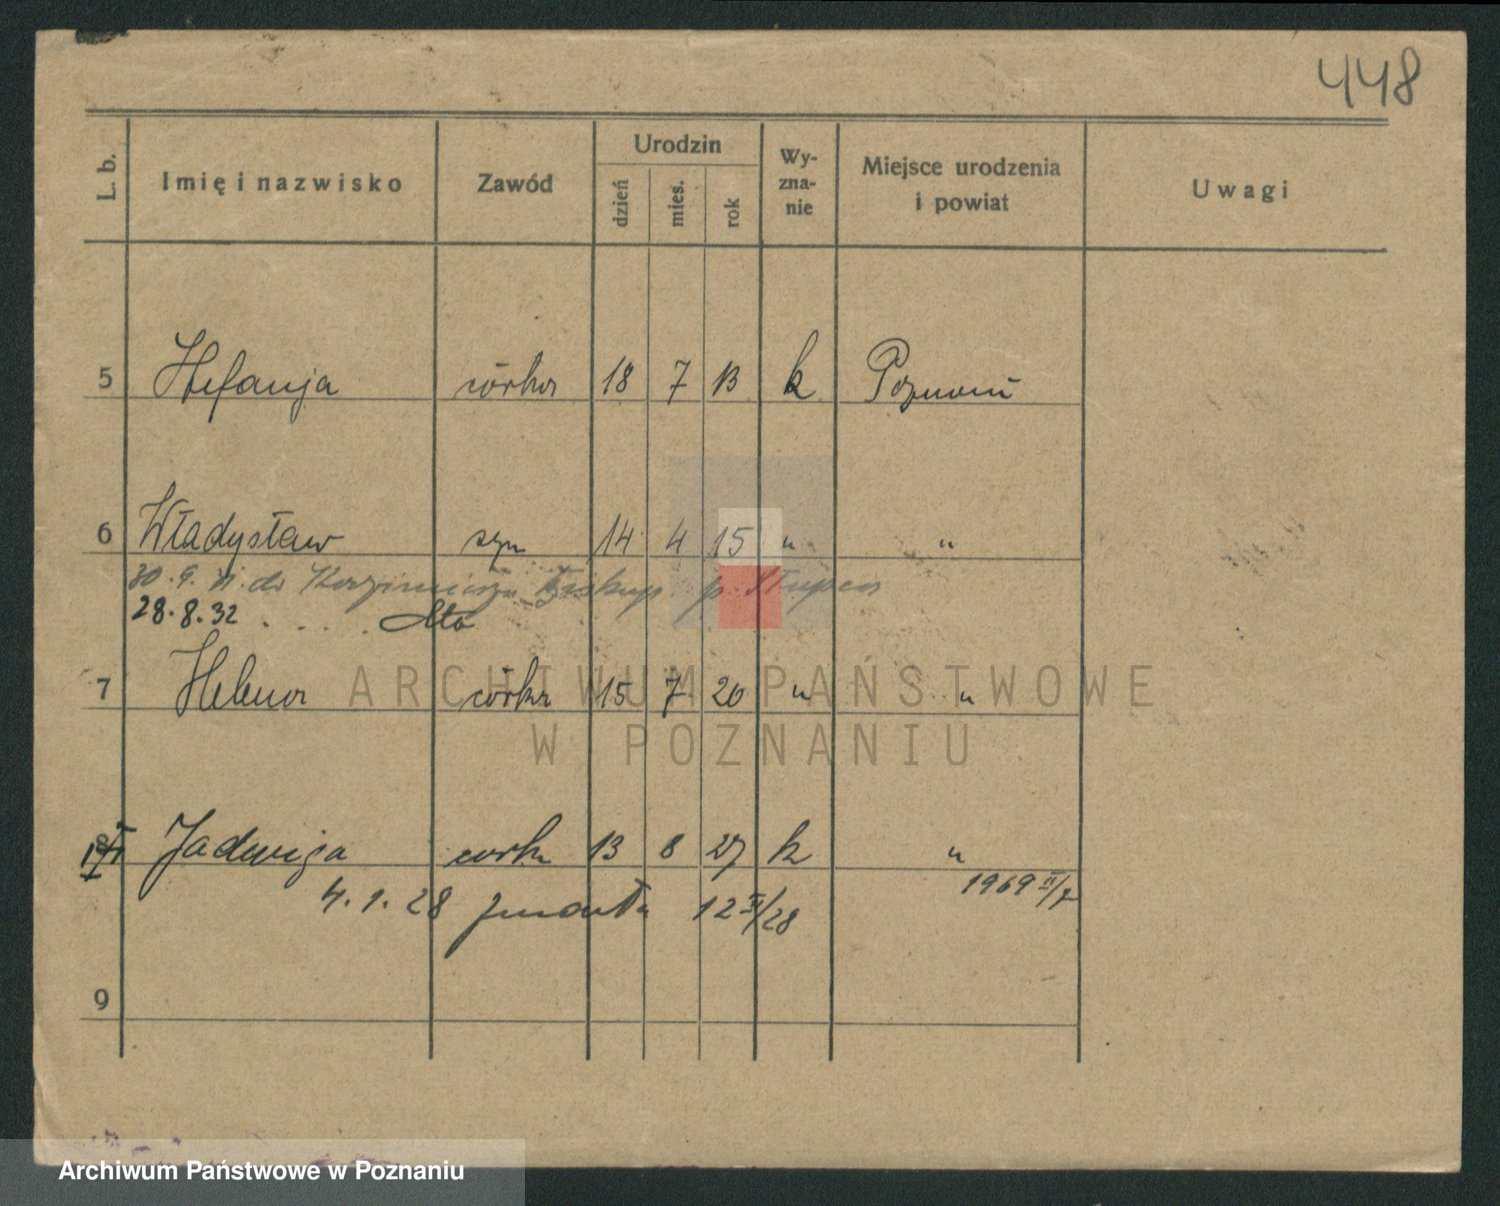 448
L. b. Imię i nazwisko Zawód Urodzin dzień mies. rok Wy-zna-nie Miejsce urodzenia i powiat Uwagi
5 Stefanja córka 18 7 13 k Poznań
6 Władysław syn 14 4 15 " "
30. 9. do Kazimierza Biskup. p. Słupca
28.8.32 . . . .
7 Helena córka 15 7 20 " "
ARCHIWUM PAŃSTWOWE
W POZNANIU
8 Jadwiga córka 13 8 27 k "
4. 1. 28 zmarła 12 /28 1969 II/7
9
Archiwum Państwowe w Poznaniu